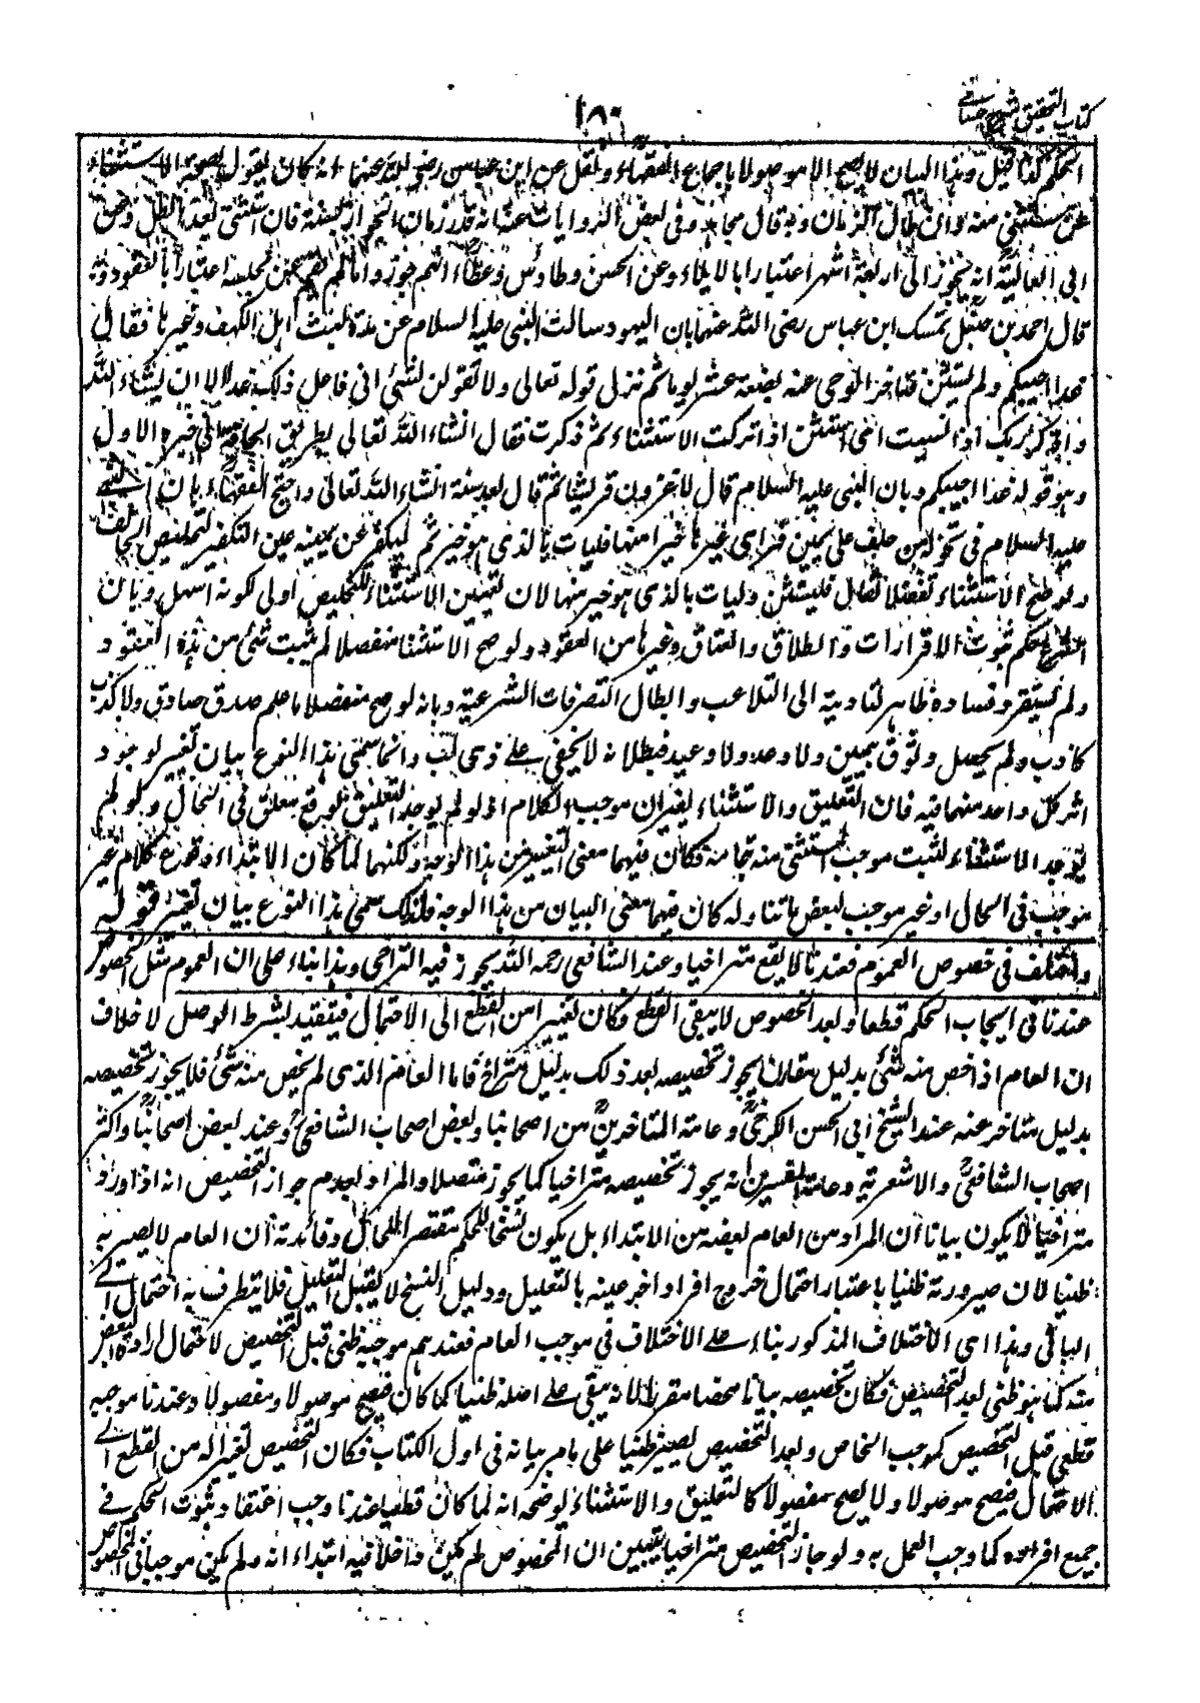 كتاب التحقيق شرح حسامي
١٨٠
الحكم كذا قيل وهذا البيان لا يصح الا موصولا باجماع الفقهاء ونقل عن ابن عباس رضي الله عنهما انه كان يقول بصحة الاستثناء
منه وان طال الزمان وبه قال مجاهد وفي بعض الروايات عنه انه قدر زمان الجواز بسنة فان استثنى بعدها بطل وعن
ابي العالية انه يجوز الى اربعة اشهر اعتبارا بالايلاء وعن الحسن وطاوس وعطاء انهم جوزوا ما لم يقم عن مجلسه اعتبارا بالعقود وبه
قال احمد بن حنبل تمسك ابن عباس رضى الله عنهما بان اليهود سالت النبى عليه السلام عن مدة لبث اهل الكهف وغيرها فقال
غدا اجيبكم ولم يستثن فتاخر الوحى عنه بضعة عشر يوما ثم نزل قوله تعالى ولا تقولن لشئ انى فاعل ذلك غدا الا ان يشاء الله
واذكر ربك اذا نسيت اى استثن اذا تركت الاستثناء ثم ذكرت فقال انشاء الله تعالى بطريق الحاقه الى خبره الاول
وهو قوله غدا اجيبكم وبان النبى عليه السلام قال لاغزون قريشا ثم قال بعد سنة انشاء الله تعالى واحتج الفقهاء بان النبي
عليه السلام فى قوله من حلف على يمين فراى غيرها خيرا منها فليات بالذى هو خير ثم ليكفر عن يمينه عين التكفير لتخليص الحالف
ولو صح الاستثناء منفصلا لقال فليستثن وليات بالذى هو خير منها لان تعيين الاستثناء للتخليص اولى لكونه اسهل وبان
الشرع حكم بثبوت الاقرارات والطلاق والعتاق وغيرها من العقود ولو صح الاستثنا منفصلا لم يثبت شئ من هذه العقود
ولم يستقر وفساده ظاهر لتاديته الى التلاعب وابطال التصرفات الشرعية وبانه لو صح منفصلا ما علم صدق صادق ولا كذب
كاذب ولم يحصل وثوق بيمين ولا وعد ولا وعيد فبطلانه لا يخفى على ذى لب وانما سمى هذا النوع بيان تغيير لوجود
اثر كل واحد منهما فيه فان التعليق والاستثناء يغيران موجب الكلام اذ لو لم يوجد التعليق لوقع معلق فى الحال ولو لم
يوجد الاستثناء لثبت موجب المستثنى منه بتمامه فكان فيهما معنى التغيير من هذا الوجه ولكنهما لما كان الابتداء وقوع كلام غير
موجب فى الحال او غير موجب لبعض ما تناوله كان فيهما معنى البيان من هذا الوجه فلذلك سمى هذا النوع بيان تغيير قوله
واختلف فى خصوص العموم فعندنا لا يقع متراخيا وعند الشافعى رحمه الله يجوز فيه التراخى وهذا بناء على ان العموم مثل الخصوص
عندنا فى ايجاب الحكم قطعا وبعد الخصوص لا يبقى القطع فكان تغييرا من القطع الى الاحتمال فيتقيد بشرط الوصل لا خلاف
ان العام اذا خص منه شئ بدليل مقارن يجوز تخصيصه بعد ذلك بدليل متراخ فاما العام الذى لم يخص منه شئ فلا يجوز تخصيصه
بدليل متاخر عنه عند الشيخ ابى الحسن الكرخى وعامة المتاخرين من اصحابنا وبعض اصحاب الشافعى وعند بعض اصحابنا واكثر
اصحاب الشافعى والاشعرية وعامة المفسرين انه يجوز تخصيصه متراخيا كما يجوز متصلا والمراد بعدم جواز التخصيص انه اذا ورد
متراخيا لا يكون بيانا ان المراد من العام بعضه من الابتداء بل يكون نسخا للحكم مقتصر اللحال وفائدته ان العام لا يصير به
ظنيا لان صيرورته ظنيا باعتبار احتمال خروج افراد اخر عينه بالتعليل ودليل النسخ لا يقبل التعليل فلا يتطرف به احتمال الى
الباقى وهذا اى الاختلاف المذكور بناء على الاختلاف فى موجب العام فعندهم موجبه ظنى قبل التخصيص لاحتمال ارادة البعض
منه كما هو ظنى بعد التخصيص فكان تخصيصه بيانا محضا مقررا لانه يبقى على اصله ظنيا كما كان فيصح موصولا ومفصولا وعندنا موجبه
قطعى قبل التخصيص كموجب الخاص وبعد التخصيص يصير ظنيا على ما مر بيانه فى اول الكتاب فكان التخصيص تغييرا له من القطع الى
الاحتمال فيصح موصولا ولا يصح مفصولا كالتعليق والاستثناء يوضحه انه لما كان قطعيا عندنا وجب اعتقاد ثبوت الحكم فى
جميع افراده كما وجب العمل به ولو جاز التخصيص متراخيا يتبين ان المخصوص لم يكن داخلا فيه ابتداء انه ولم يكن موجبا فى المخصوص